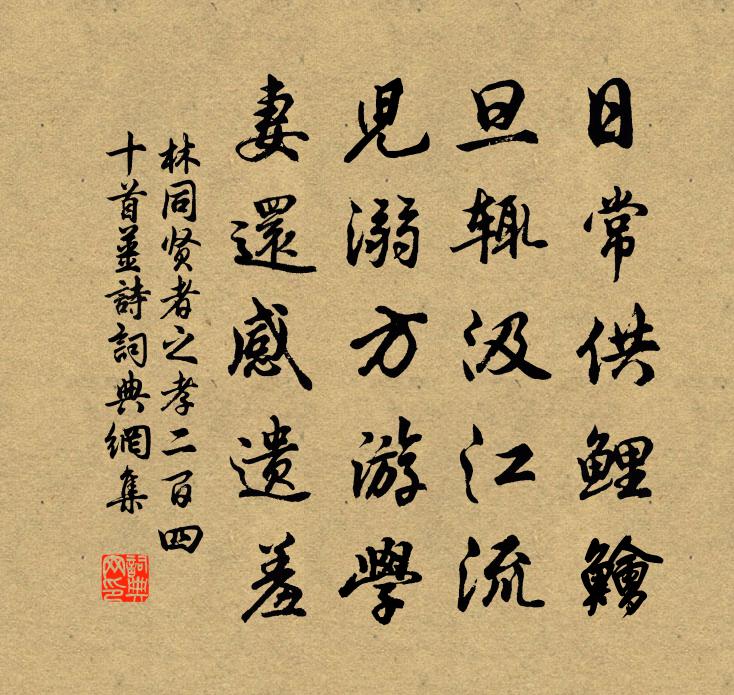 日常供鯉鱠
旦輒汲江流
兒溺方游學
妻還感遺羞
林同贤者之孝二百四
十首薑詩詞典網集
詞典
网印